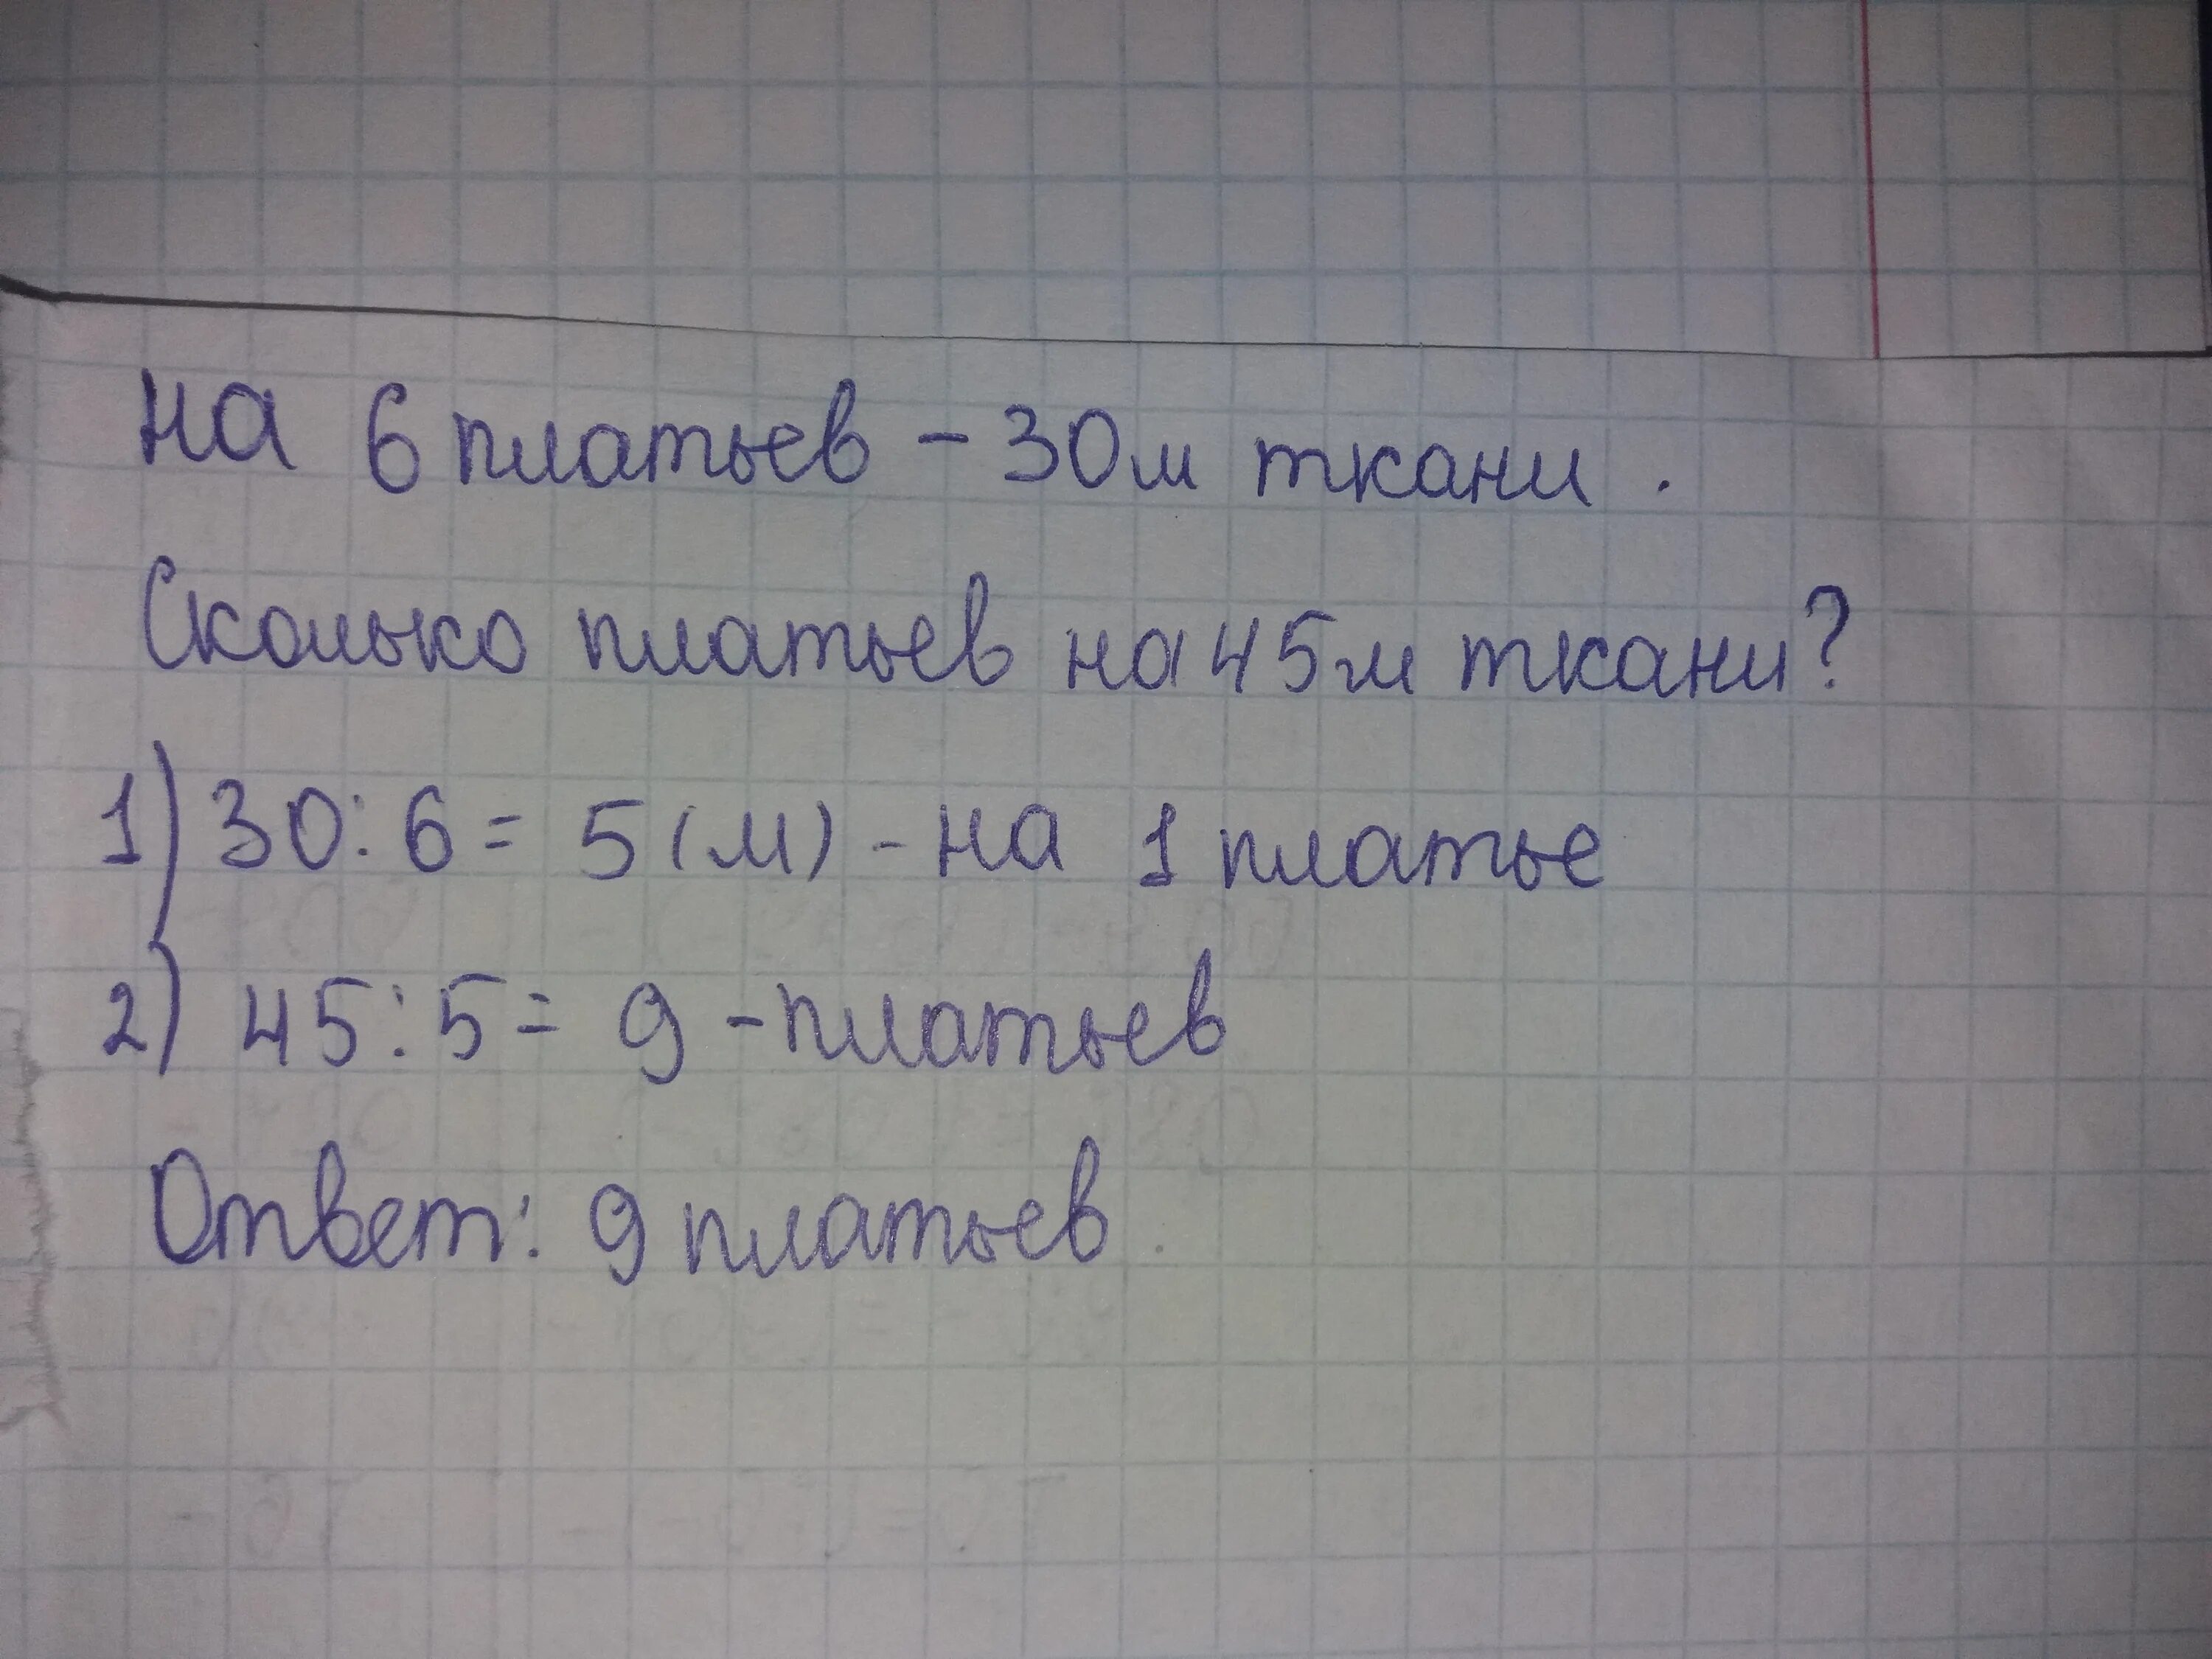 на 6 платьев – 30м ткани.
Сколько платьев на 45м ткани?
1) 30:6= 5(м) – на 1 платье
2) 45:5= 9 – платьев
Ответ: 9 платьев.